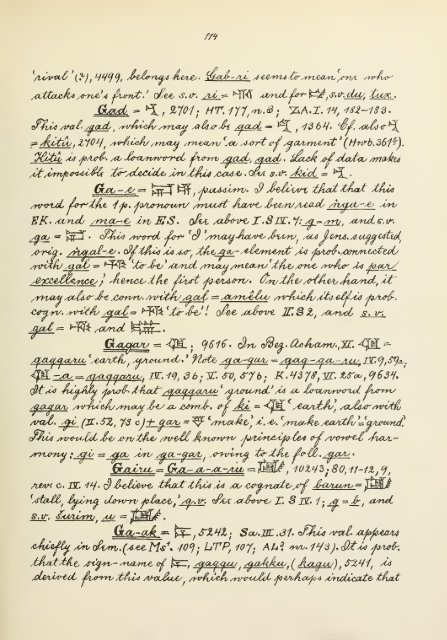 114
'rival' (?), 4499, belongs here. Gab-ri seems to mean 'one who
attacks one's front.' See s.v. ri = and for s.v. du, tux.
Gad = , 2701; HT. 177, n. 3; ZA. I. 14, 182-183.
This val. gad, which may also be gad = , 1364. Cf. also
= kitû, 2704, which may mean 'a sort of garment' (Hwb. 361b).
Kitû is prob. a loanword from gad, gad. Lack of data makes
it impossible to decide in this case. See s.v. kid = .
Ga-e = , passim. I believe that that this
word for the 1 p. pronoun must have been read ngu-e in
EK. and ma-e in ES. See above I. § IV. 7: g = m, and s.v.
ga = . This word for 'I' may have been, as Jens. suggested,
orig. ngal-e. If this is so, the ga- element is prob. connected
with gal = 'to be' and may mean 'the one who is par
excellence; hence the first person. On the other hand, it
may also be conn. with gal = amêlu which itself is prob.
cogn. with gal = 'to be'! See above II. § 2, and s.v.
gal = and .
Gagar = ; 9616. In Beg. Acham. VI. =
gaggaru 'earth, ground.' Note ga-gar = gag-ga-ru, IV. 9, 59a;
-a = gaggaru, IV. 19, 36; V. 50, 57b; K. 4378, VI. 25a, 9634.
It is highly prob. that gaggaru 'ground' is a loanword from
gagar which may be a comb. of ki = 'earth', also with
val. gi (II. 52, 73 c) + gar = 'make', i.e. 'make earth' = ground.
This would be on the well known principles of vowel har-
mony; gi = ga in ga-gar, owing to the foll. gar.
Gairu = Ga-a-a-ru = , 10243; 80, 11-12, 9,
rev. c. IV. 14. I believe that this is a cognate of barun =
'stall, lying down place,' q.v. See above I. § IV. 1; g = b, and
s.v. šurim, u = .
Ga-ak = , 5242; Sa. III. 31. This val. appears
chiefly in Sem. (see Ms. 109; LTP, 107; AL³ nr. 143). It is prob.
that the sign-name of , gaggu, gakku, (kagu), 5241, is
derived from this value, which would perhaps indicate that